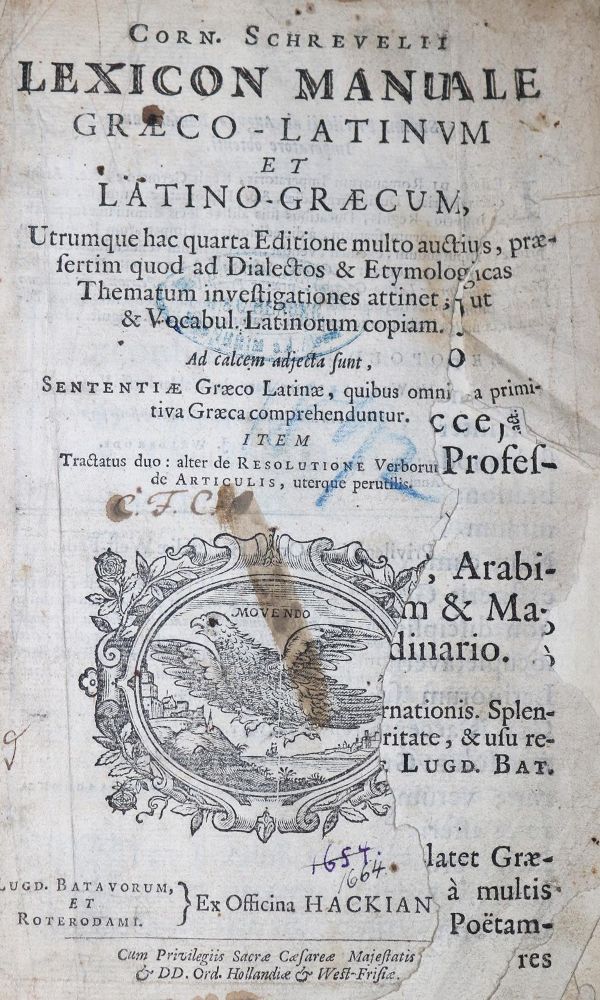 CORN. SCHREVELII
LEXICON MANUALE
GRÆCO-LATINVM
ET
LATINO-GRÆCUM,
Utrumque hac quarta Editione multo auctius, præ-
sertim quod ad Dialectos & Etymologicas
Thematum investigationes attinet; ut
& Vocabul. Latinorum copiam.
o
Ad calcem adjecta sunt,
SENTENTIÆ Græco Latinæ, quibus omni a primi-
tiva Græca comprehenduntur.
cce,
ITEM
Tractatus duo: alter de RESOLUTIONE Verborum
Profes-
de ARTICULIS, uterque perutilis.
C.F.C.
, Arabi-
MOVENDO
m & Ma-
dinario.
rnationis. Splen-
ritate, & usu re-
LUGD. BAT.
1654.
1664
latet Græ-
LUGD. BATAVORUM,
ET
ROTERODAMI.
Ex Officina HACKIAN
à multis
Poëtam-
res
Cum Privilegiis Sacræ Cæsareæ Majestatis
& DD. Ord. Hollandiæ & West-Frisiæ.